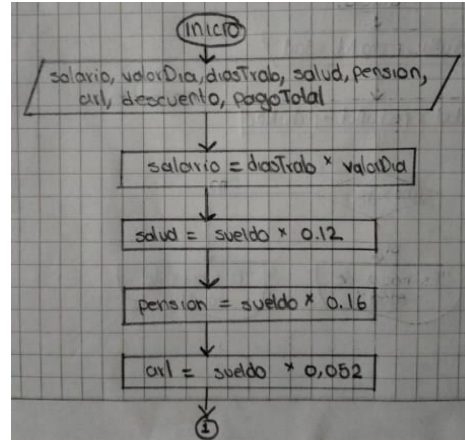 inicio
salario, valorDia, diasTrab, salud, pension,
arl, descuento, pagoTotal
salario = diasTrab * valorDia
salud = sueldo * 0.12
pension = sueldo * 0.16
arl = sueldo * 0,052
1